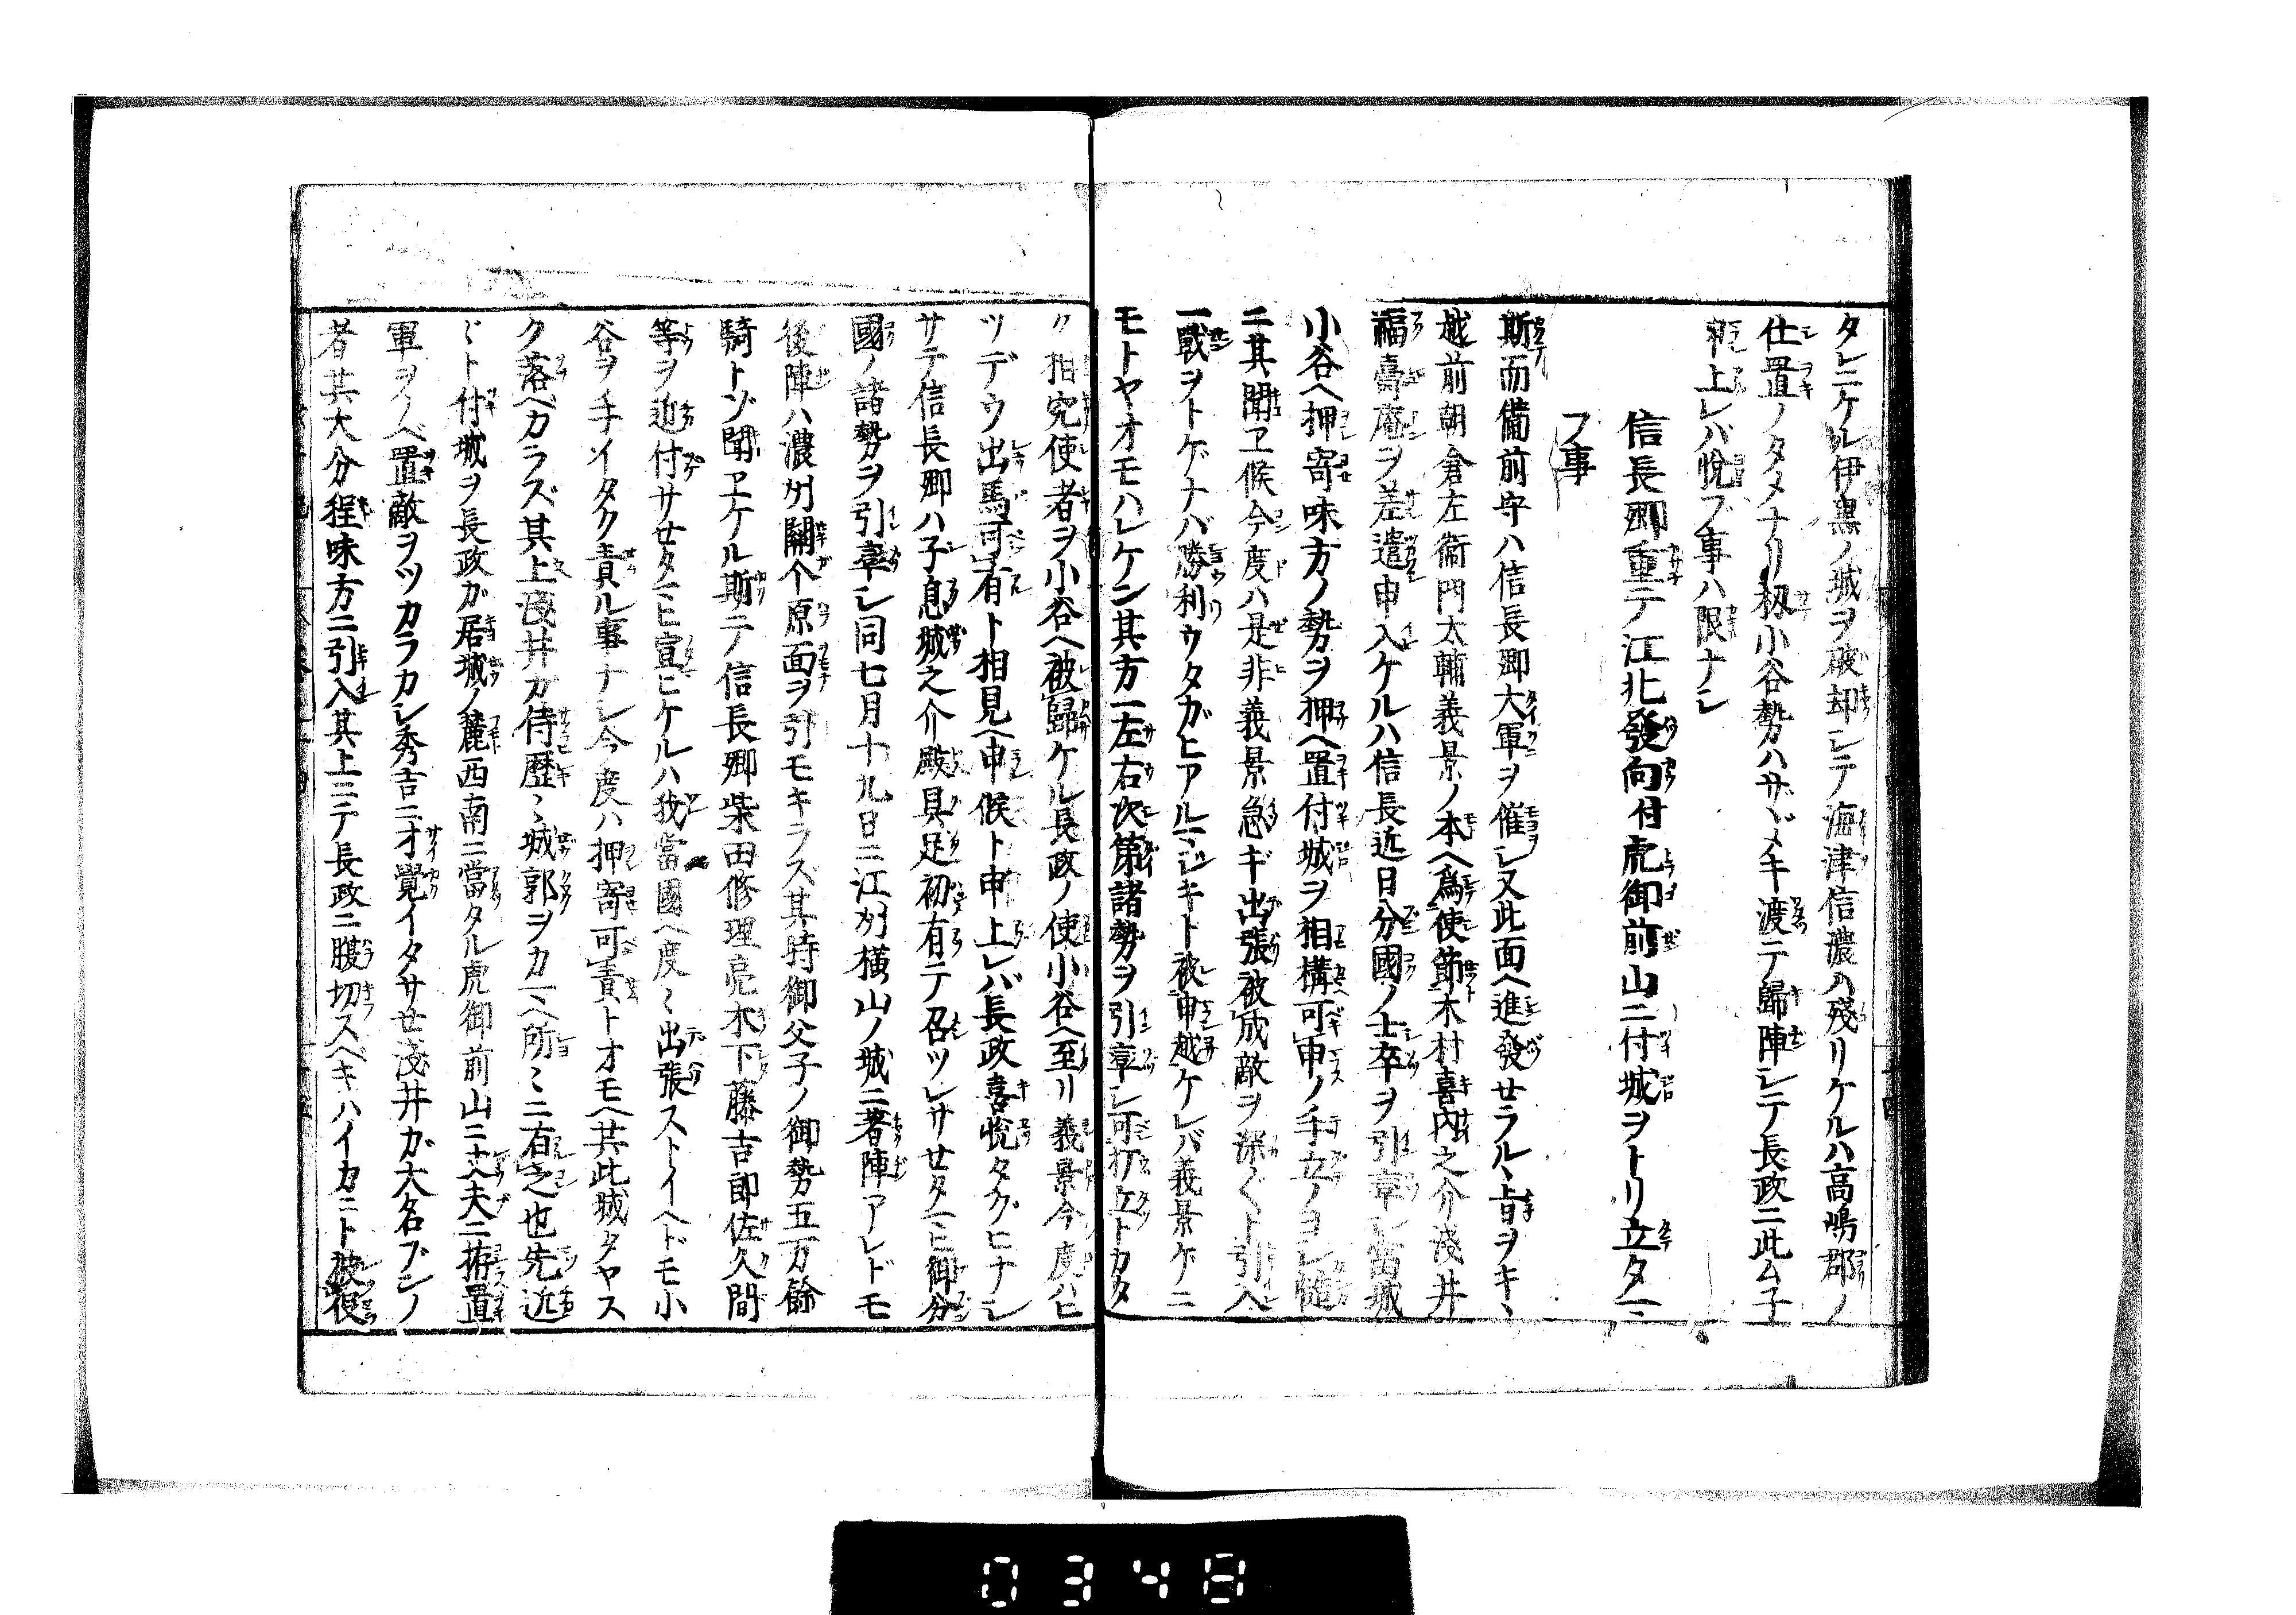 タレニケル伊黒ノ城ヲ破却シテ海津信濃ハ殘リケルハ高嶋郡ノ
仕置ノタメナリ扨小谷勢ハサヾメキ渡テ歸陣シテ長政ニ此ム子
申上レバ悅ブ事ハ限ナシ
信長卿重テ江北發向付虎御前山ニ付城ヲトリ立タマ
フ事
斯而備前守ハ信長卿大軍ヲ催シ又此面ヘ進發セラルヽ旨ヲキヽ
越前朝倉左衞門太輔義景ノ本ヘ爲使節木村喜内之介淺井
福壽庵ヲ差遣申入ケルハ信長近日分國ノ士卒ヲ引率シ當城
小谷ヘ押寄味方ノ勢ヲ押ヘ置付城ヲ相構可申ノ手立ノヨシ慥
ニ其聞ヱ候今度ハ是非義景急ギ出張被成敵ヲ深〱ト引入
一戰ヲトゲナバ勝利ウタガヒアルマジキト被申越ケレバ義景ゲニ
モトヤオモハレケン其方一左右次第諸勢ヲ引率シ可打立トカタ
ク相究使者ヲ小谷ヘ被歸ケル長政ノ使小谷ヘ至リ義景今度ハヒ
ツデウ出馬可有ト相見ヘ申候ト申上レバ長政喜悅タグヒナシ
サテ信長卿ハ子息城之介殿具足初有テ召ツレサセタマヒ御分
國ノ諸勢ヲ引率シ同七月十九日ニ江州橫山ノ城ニ著陣アレドモ
後陣ハ濃州關个原面ヲ引モキラズ其時御父子ノ御勢五万餘
騎トゾ聞ヱケル斯テ信長卿柴田修理亮木下藤吉郎佐久間
等ヲ近付サセタマヒ宣ヒケルハ我當國ヘ度〻出張ストイヘドモ小
谷ヲ手イタク責ル事ナシ今度ハ押寄可責トオモヘ共此城タヤス
ク落ベカラズ其上淺井ガ侍歷〻城郭ヲカマヘ所〻ニ有之也先近
〻ト付城ヲ長政ガ居城ノ麓西南ニ當タル虎御前山ニ丈夫ニ拵置
軍ヲノベ置敵ヲツカラカシ秀吉ニオ覺イタサセ淺井ガ大名ブンノ
者共大分程味方ニ引入其上ニテ長政ニ腹切スベキハイカニト被仰
0348